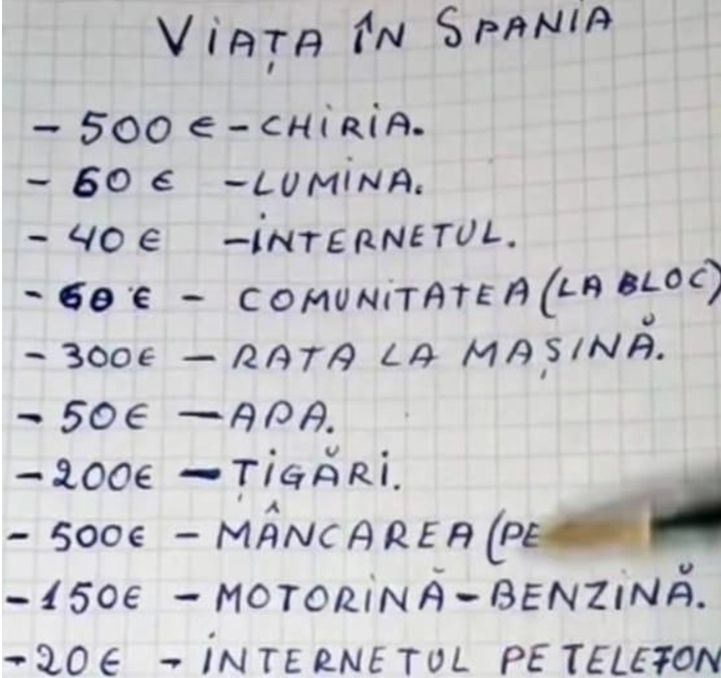 VIAȚA ÎN SPANIA
- 500 € - CHIRIA.
- 60 € - LUMINA.
- 40 € - INTERNETUL.
- 60 € - COMUNITATEA (LA BLOC)
- 300€ - RATA LA MAȘINĂ.
- 50€ - APA.
- 200€ - ȚIGĂRI.
- 500€ - MÂNCAREA (PE
- 150€ - MOTORINĂ - BENZINĂ.
- 20€ - INTERNETUL PE TELEFON